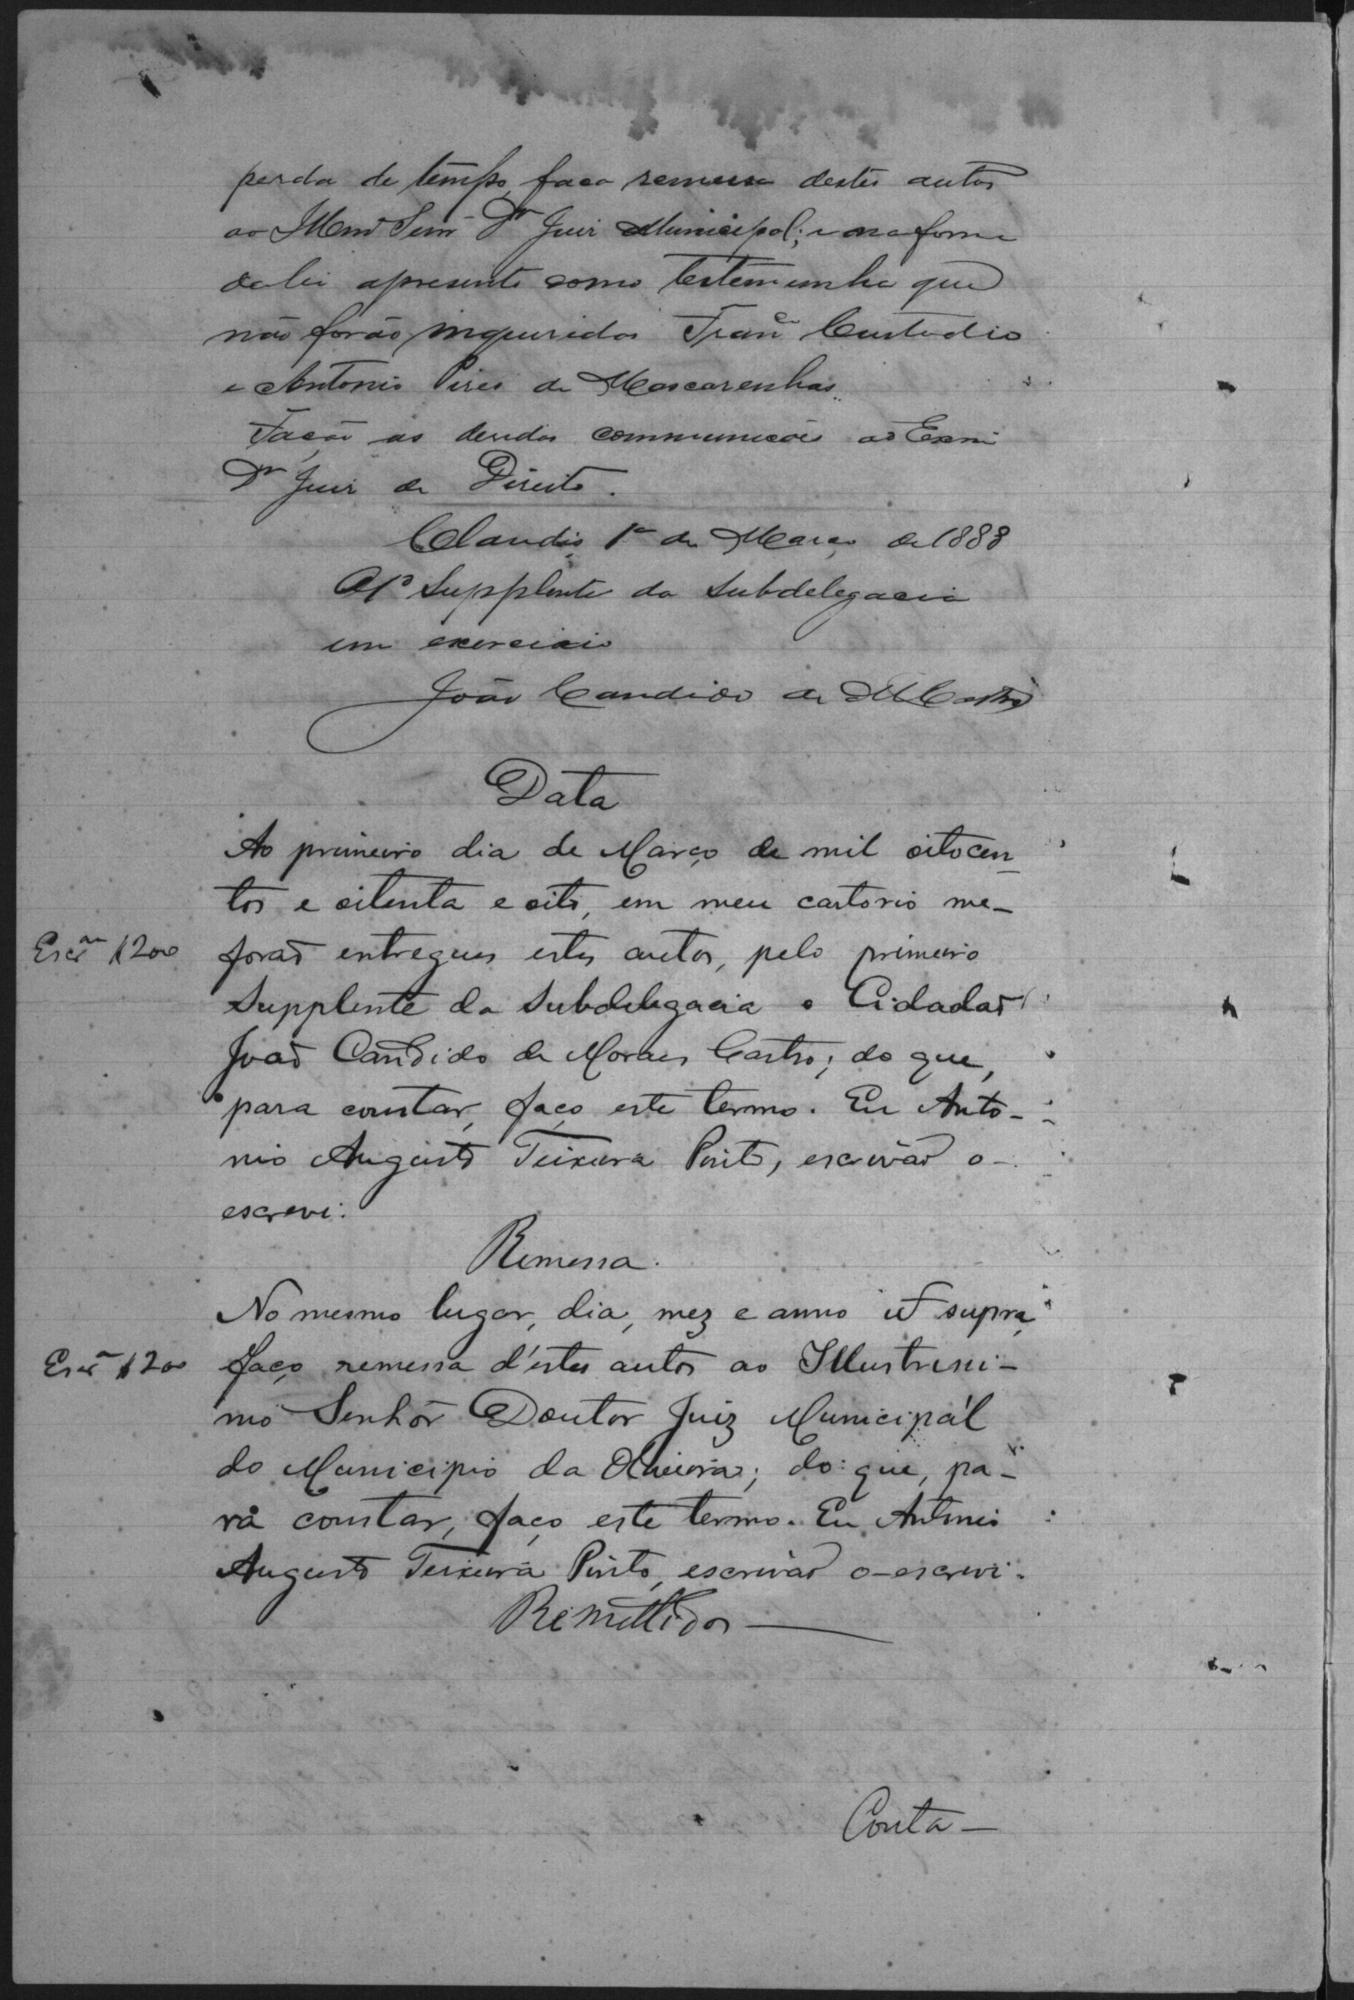 perda de tempo, faca remessa destes autos
ao Illmo Senr Dr Juiz Municipal; e na forma
da lei apresento como testemunha que
não forão inqueridos Franco Custodio
e Antonio Pires de Mascarenhas.
Fação as devidas communicões ao Exmo
Dr Juiz de Direito.
Claudio, 1º de Março de 1888
O 1º Supplente da Subdelegacia
em exercicio
João Candido de M Castro
Data
Ao primeiro dia de Março de mil oitocen-
tos e oitenta e oito, em meu cartorio me-
Escam $200 foraõ entregues estes autos, pelo primeiro
Supplente da Subdelegacia o Cidadaõ
Joaõ Candido de Moraes Castro; do que,
para constar, faço este termo. Eu Anto-
nio Augusto Teixeira Pinto, escrivaõ o-
escrevi.
Remessa.
No mesmo lugar, dia, mez e anno ut supra,
Escam $200 faço remessa d'estes autos ao Illustrissi-
mo Senhor Doutor Juiz Municipal
do Municipio da Oliveira; do que, pa-
ra constar, faço este termo. Eu Antonio
Augusto Teixeira Pinto, escrivaõ o-escrevi.
Remettidos
Conta